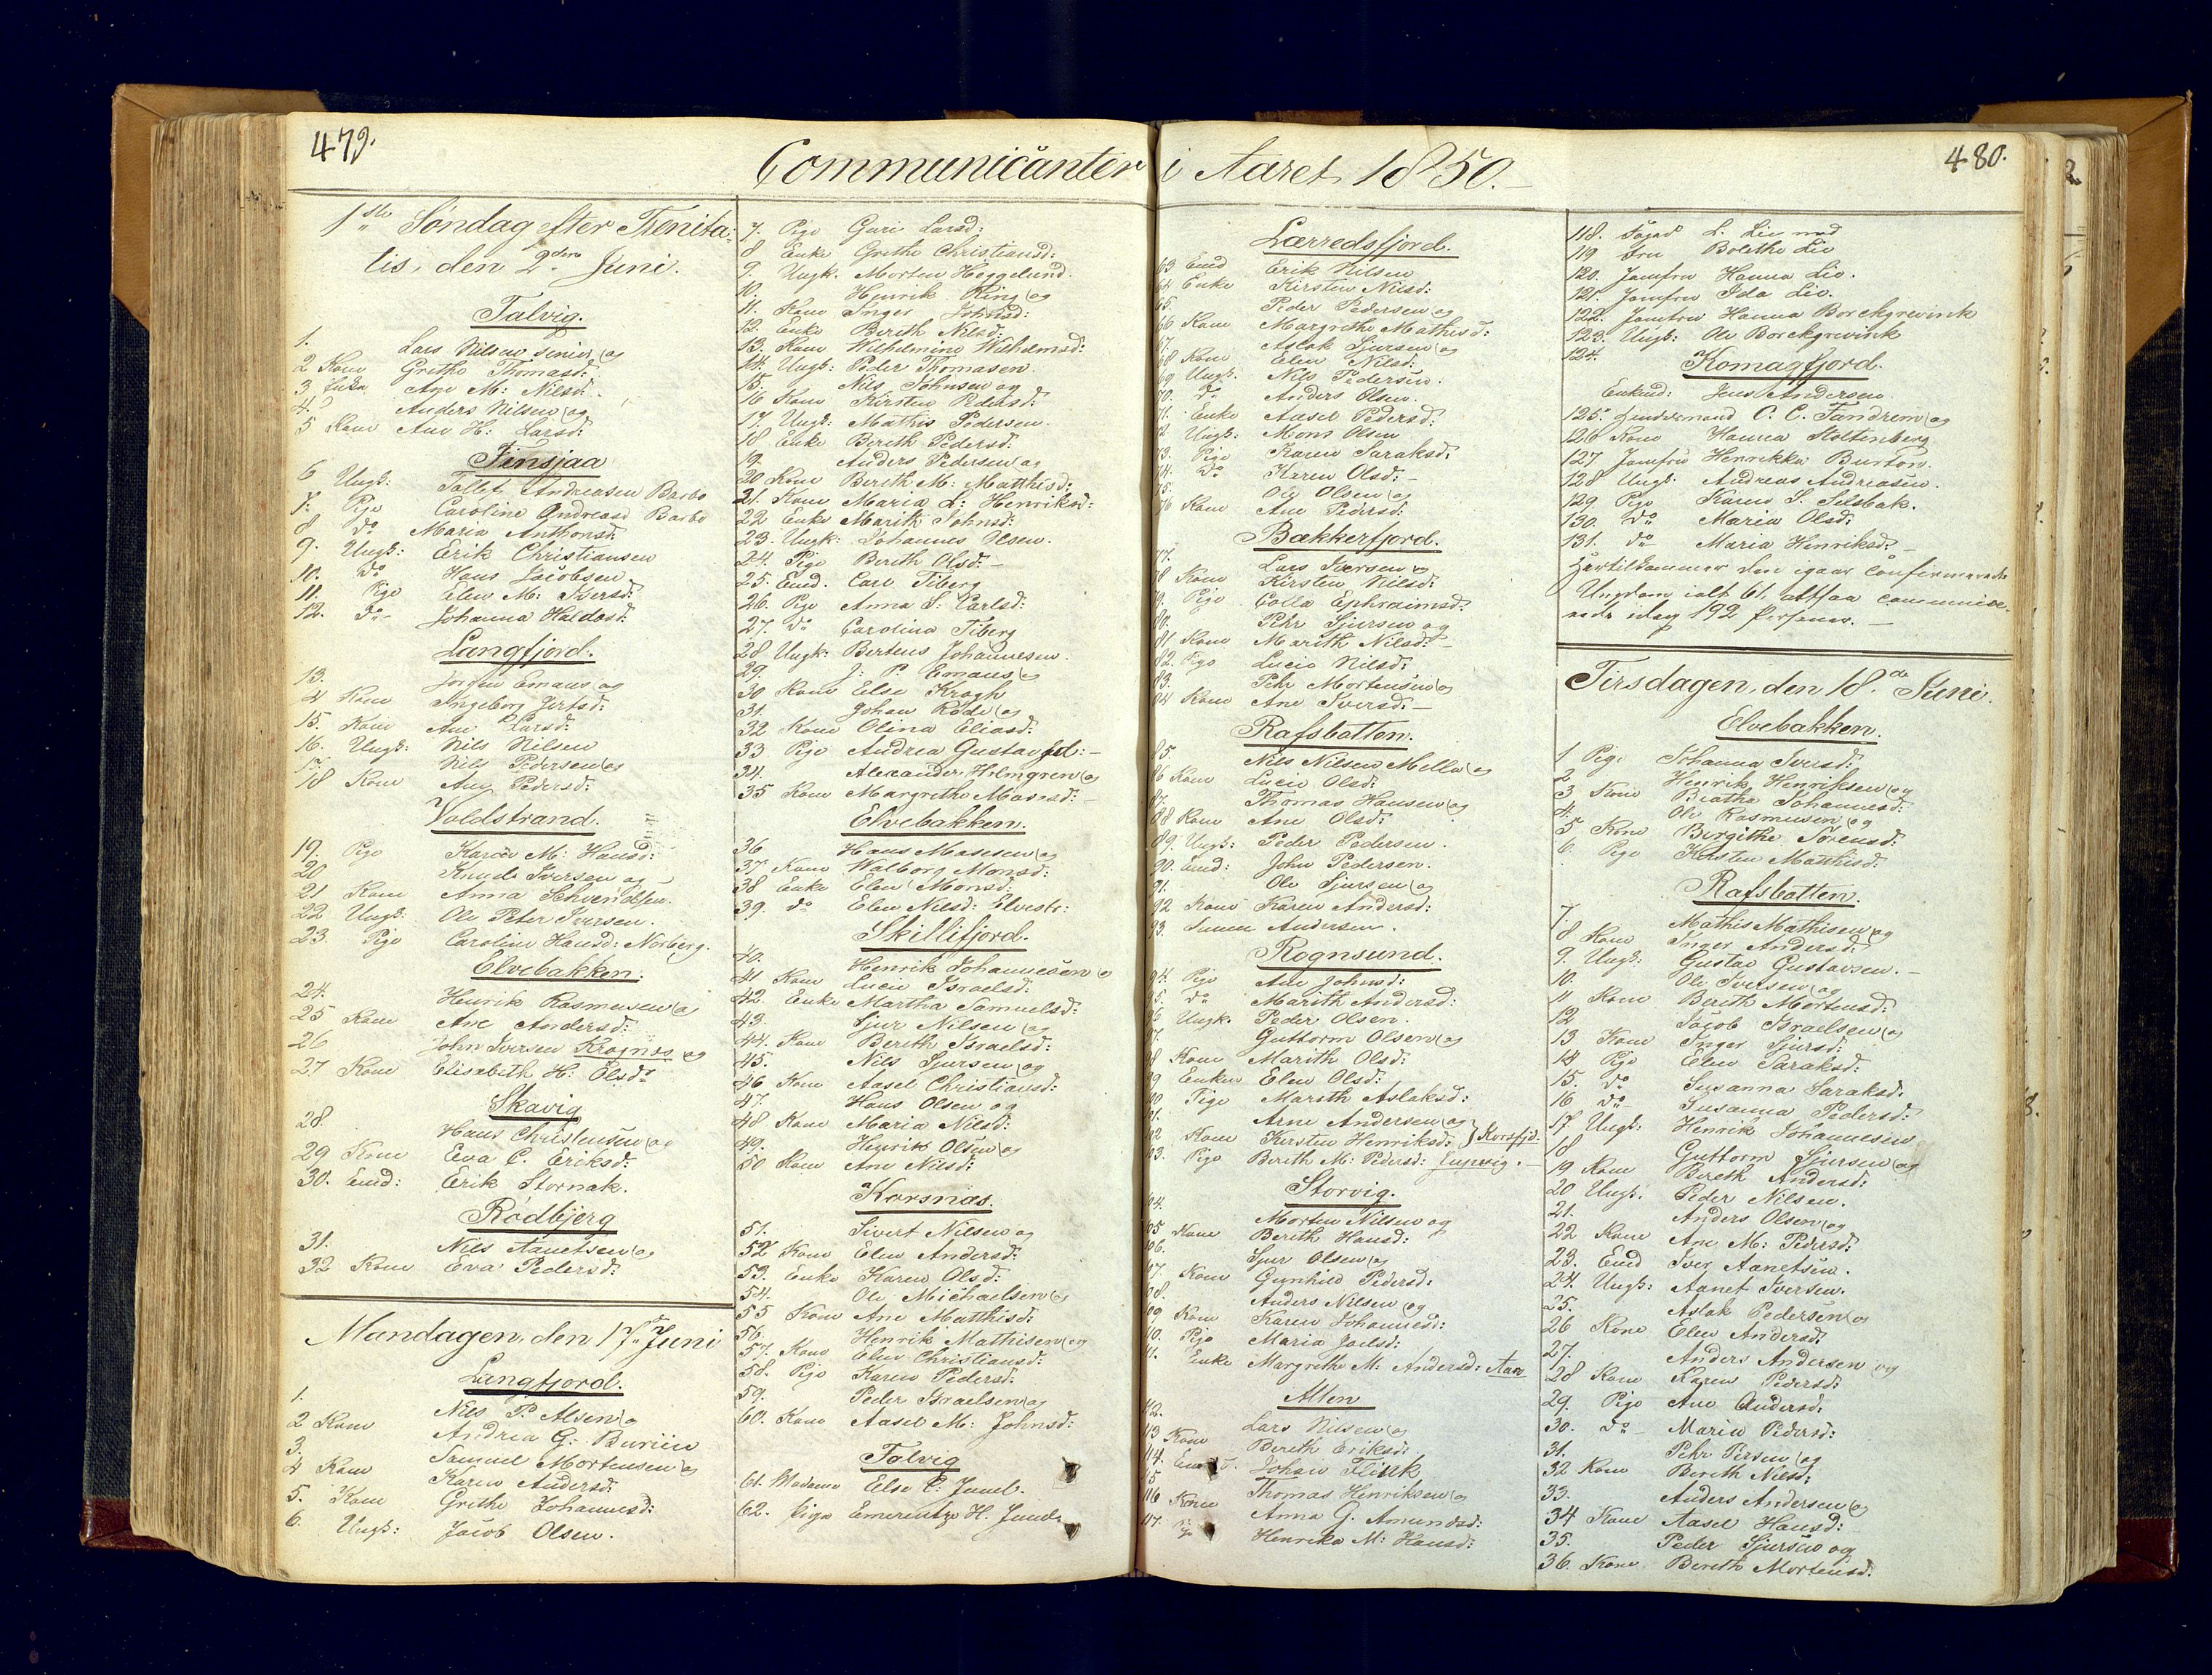 479.
Communicanter i Aaret 1850.
480.
1ste Søndag efter Trenita-
tis, den 2den Juni.
Talvig.
1. Lars Nilsen senior og
2 Kone Grethe Thomasd:
3 Enke Ane M: Nilsd:
4. Anders Nilsen og
5 Kone Ane H: Larsd:
Jensjaa
6 Ungk: Tollef Andreasen Barbo
7. Pige Caroline Andreasd Barbo
8 do Maria Anthonsd:
9. Ungk: Erik Christiansen
10. do Hans Jacobsen
11. Pige Elen M: Iversd:
12. do Johanna Haldosd:
Langfjord.
13. Jørgen Emaus og
14 Kone Ingeborg
15. Kone Ane Larsd:
16. Ungk: Nils Nilsen
17. Nils Pedersen og
18 Kone Ane Pedersd:
Voldstrand.
19. Pige Karen M: Hansd:
20 Knud Iversen og
21 Kone Anna Schvendsen.
22 Ungk: Ole Peter Iversen.
23. Pige Caroline Hansd: Norberg.
Elvebakken.
24. Henrik Rasmusen og
25 Kone Ane Andersd:
26 John Iversen Kragnæs og
27 Kone Elisabeth H: Olsd:
Skavig
28. Hans Christensen og
29 Kone Eva C. Eriksd:
30. Enkd: Erik Stornak.
Rødbjerg
31. Nils Aanetsen og
32 Kone Eva Pedersd:
Mandagen, den 17de Juni
Langfjord.
1. Nils P. Alsen og
2 Kone Andrea G: Buriin
3. Samuel Mortensen og
4 Kone Karen Andersd:
5. Kone Grethe Johannesd:
6. Ungk: Jacob Olsen.
7. Pige Guri Larsd:
8 Enke Grethe Christiansd:
9. Ungk. Morten Heggelund.
10. Henrik Ring og
11. Kone Inger Johnsd:
12. Enke Bereth Nilsd:
13. Kone Wilhelmine Wilhelmsd:
14. Ungk: Peder Thomasen.
15. Nils Johnsen og
16 Kone Kirsten Pedersd:
17. Ungk: Mathis Pedersen.
18 Enke Bereth Pedersd:
19. Anders Pedersen og
20 Kone Bereth M: Matthisd:
21. Kone Maria L: Henriksd:
22 Enke Marith Johnsd:
23. Ungk: Johannes Olsen.
24. Pige Bereth Olsd:
25. Emd. Carl Tiberg
26. Pige Anna S: Carlsd:
27. do Carolina Tiberg
28 Ungk: Berteus Johannesen.
29. J: P: Emaus og
30 Kone Else Krogh
31. Johan Røde og
32 Kone Olina Eliasd:
33 Pige Andrea Gustavsd:
34. Alexander Holmgren og
35 Kone Margrethe Mosesd:
Elvebakken.
36 Hans Masesen og
37 Kone Walborg Monsd:
38 Enke Elen Monsd:
39. do Elen Nilsd: Elvestr:
Skillifjord.
40. Henrik Johannesen og
41 Kone Lucie Israelsd:
42. Enke Martha Samuelsd:
43. Sjur Nilsen og
44. Kone Bereth Israelsd:
45. Nils Sjursen og
46 Kone Aasel Christiansd:
47. Hans Olsen og
48 Kone Maria Nilsd:
49. Henrik Olsen og
50 Kone Ane Nilsd:
Korsnæs.
51. Sivert Nilsen og
52 Kone Elen Andersd:
53. Enke Karen Olsd:
54. Ole Michaelsen og
55 Kone Ane Matthisd:
56. Henrik Mathisen og
57. Kone Elen Christiansd:
58. Pige Karen Pedersd:
59. Peder Israelsen og
60. Kone Aasel M: Johnsd:
Talvig
61. Madame Else C: Juuel.
62. Pige Emerentze H. Juuel
Lærredsfjord.
63 Emd Erik Nilsen
64 Enke Kirsten Nilsd:
65. Peder Pedersen og
66 Kone Margrethe Mathisd:
67. Aslak Sjursen og
68 Kone Elen Nilsd:
69 Ungk. Nils Pedersen.
70. do Anders Olsen.
71. Enke Aasel Pedersd:
72 Ungk: Mons Olsen
73. Pige Karen Saraksd:
74. do Karen Olsd:
75. Ole Olsen og
76 Kone Ane Pedersd:
Bækkerfjord.
77. Lars Iversen og
78 Kone Kirsten Nilsd:
79. Pige Golla Ephraimsd:
80. Pehr Sjursen og
81 Kone Marith Nilsd:
82. Pige Lucie Nilsd:
83. Pehr Mortensen og
84 Kone Ane Iversd:
Rafsbotten.
85. Nils Nilsen Mella og
86 Kone Lucie Olsd:
87. Thomas Hansen og
88 Kone Ane Olsd:
89. Ungk: Peder Pedersen.
90. Emd: John Pedersen.
91. Ole Sjursen og
92 Kone Karen Andersd:
93. Andersen.
Rognsund.
94. Pige Ane Johnsd:
95. do Marith Andersd:
96 Ungk. Peder Olsen.
97. Guttorm Olsen og
98 Kone Marith Olsd:
99 Enken Elen Olsd:
100 Pige Marith Aslaksd:
101. Arne Andersen og
102 Kone Kirsten Henriksd: } Korsfjd:
103. Pige Bereth M: Pedersd:
Storvig.
104. Morten Nilsen og
105 Kone Bereth Hansd:
106. Sjur Olsen og
107. Kone Gunhild Pedersd:
108. Anders Nilsen og
109 Kone Karen Johannesd:
110. Pige Maria Joelsd:
111. Enke Margrethe M: Andersd: Aarø
Alten
112. Lars Nilsen og
113 Kone Bereth Eriksd:
114. Johan Flink
115 Thomas Henriksen og
116 Kone Anna G. Amundsd:
117. Henrika M: Hansd:
118. Foged L. Lie med
119 Frue Bolethe Lie
120. Jomfru Hanna Lie.
121. Jomfru Ida Lie.
122. Jomfru Hanna Borchgrevink
123. Ungk: Ole Borchgrevink
124.
Komagfjord.
Enkemd: Jens Andersen
125. Handelsmand O. C. Fandrem og
126 Kone Hanna Stoltenberg
127 Jomfru Henrikka Burton.
128 Ungk. Andreas Andreasen.
129 Pige Karen S. Silsbak.
130. do Maria Olsd:
131. do Maria Henriksd:
Hertilkommer den igaar confirmerede
Ungdom ialt 61, altsaa communice-
rede idag 192 Personer.
Tirsdagen, den 18de Juni.
Elvebakken.
1 Pige Johanna Iversd:
2 Henrik Henriksen og
3 Kone Beathe Johannesd:
4. Ole Rasmusen og
5 Kone Birgithe Sørensd:
6. Pige Kirsten Matthisd:
Rafsbotten.
7. Mathis Mathisen og
8 Kone Inger Andersd:
9. Ungk: Gustav Gustavsen.
10. Ole Iversen og
11 Kone Bereth Mortensd:
12 Jacob Israelsen og
13 Kone Inger Sjursd:
14 Pige Elen Saraksd:
15. do Susanna Saraksd:
16 do Susanna Pedersd:
17 Ungk: Henrik Johannesen
18 Guttorm Sjursen og
19 Kone Bereth Andersd:
20 Ungk. Peder Nilsen.
21. Anders Olsen og
22 Kone Ane M: Pedersd:
23. Emd Iver Aanetsen.
24. Ungk: Aanet Iversen.
25. Aslak Pedersen og
26 Kone Elen Andersd:
27. Anders Andersen og
28 Kone Karen Pedersd:
29. Pige Ane Andersd:
30. do Maria Pedersd:
31. Pehr Persen og
32 Kone Bereth Nilsd:
33. Anders Andersen og
34 Kone Aasel Hansd:
35. Peder Sjursen og
36 Kone Bereth Mortensd: